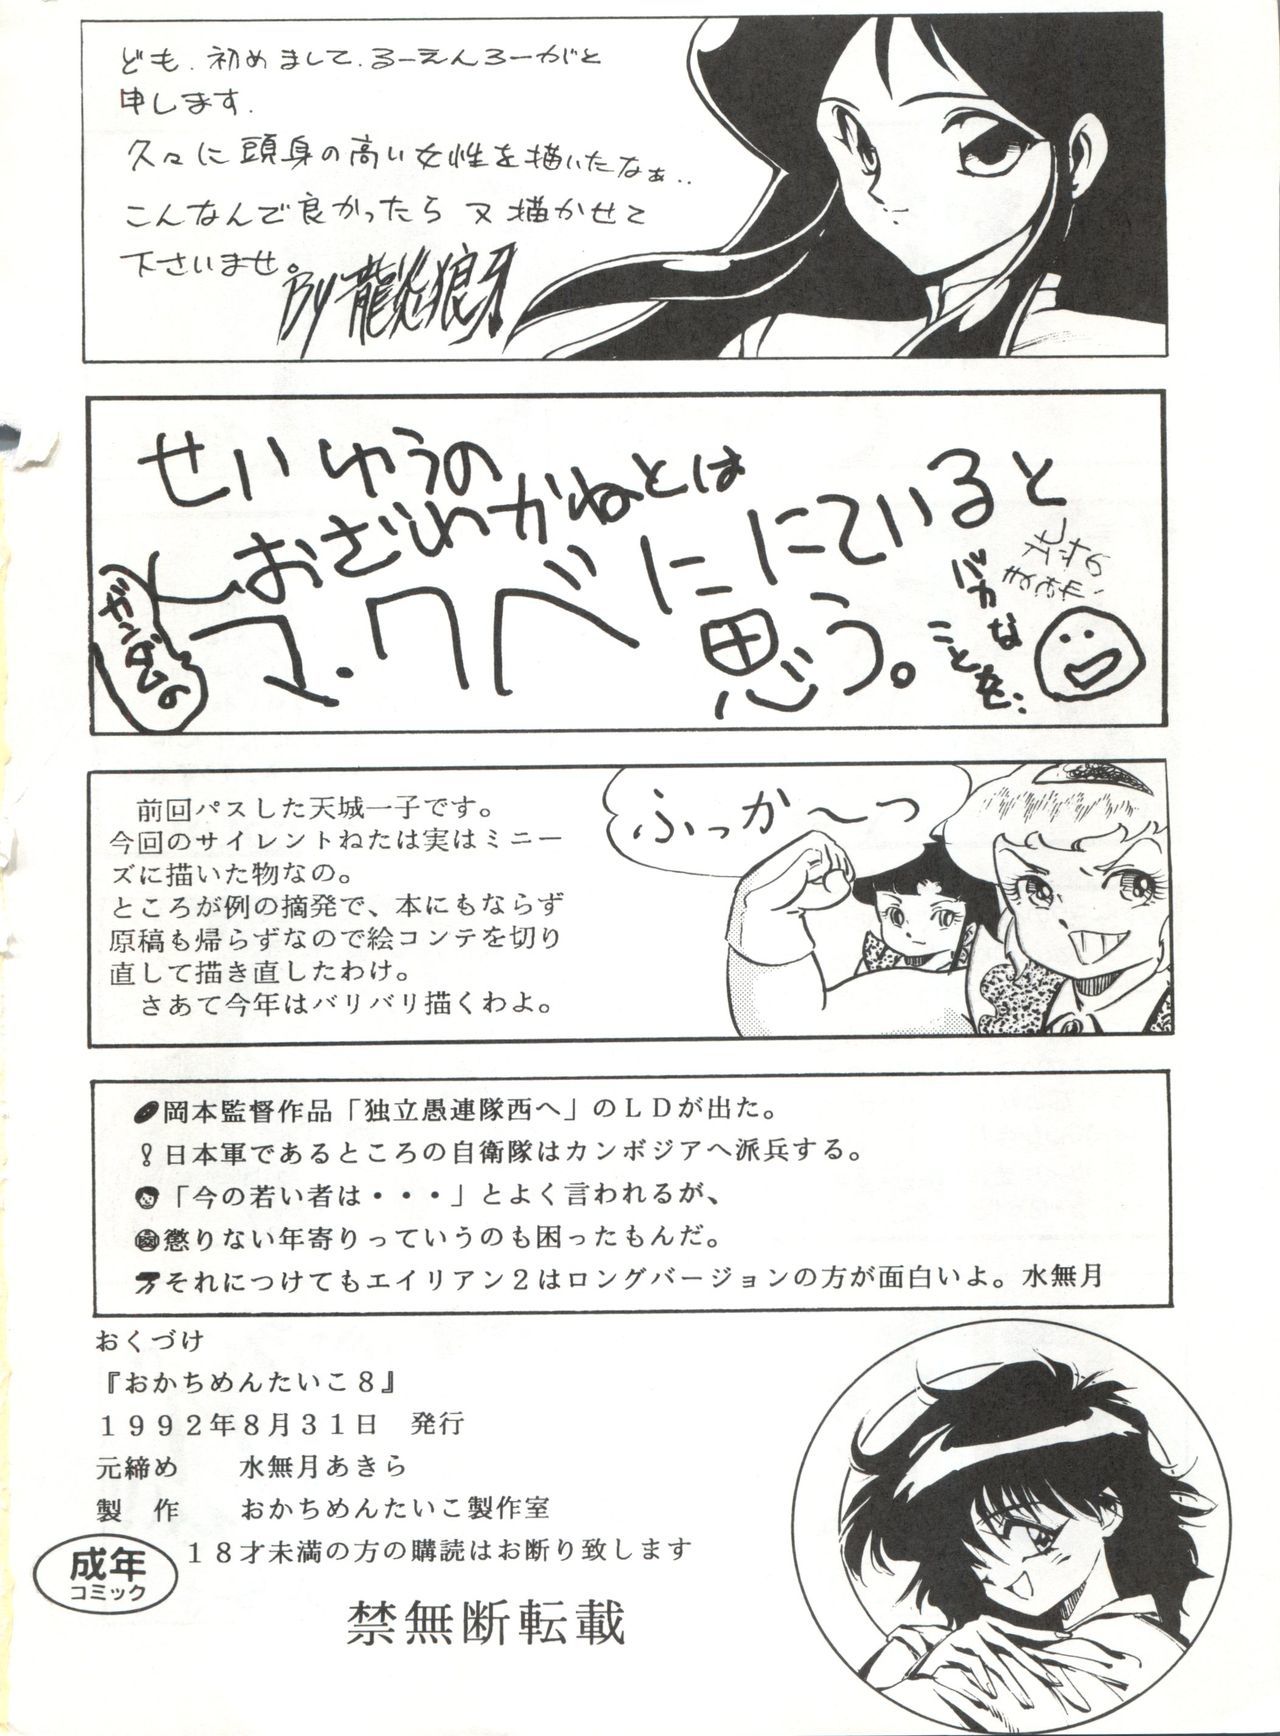 ども、初めまして、るーえんろーがと
申します。
久々に頭身の高い女性を描いたなぁ..
こんなんで良かったら 又 描かせて
下さいませ。
By 龍炎狼牙
せいゆうの
おざわかねとは
ガンダムの
マ・クベににていると
思う。
バカな
ことを..
ふっか〜つ
前回パスした天城一子です。
今回のサイレントねたは実はミニー
ズに描いた物なの。
ところが例の摘発で、本にもならず
原稿も帰らずなので絵コンテを切り
直して描き直したわけ。
さあて今年はバリバリ描くわよ。
岡本監督作品「独立愚連隊西へ」のＬＤが出た。
！日本軍であるところの自衛隊はカンボジアへ派兵する。
「今の若い者は・・・」とよく言われるが、
懲りない年寄りっていうのも困ったもんだ。
それにつけてもエイリアン２はロングバージョンの方が面白いよ。水無月
おくづけ
『おかちめんたいこ８』
１９９２年８月３１日　発行
元締め　　水無月あきら
製　作　　おかちめんたいこ製作室
１８才未満の方の購読はお断り致します
成年
コミック
禁無断転載